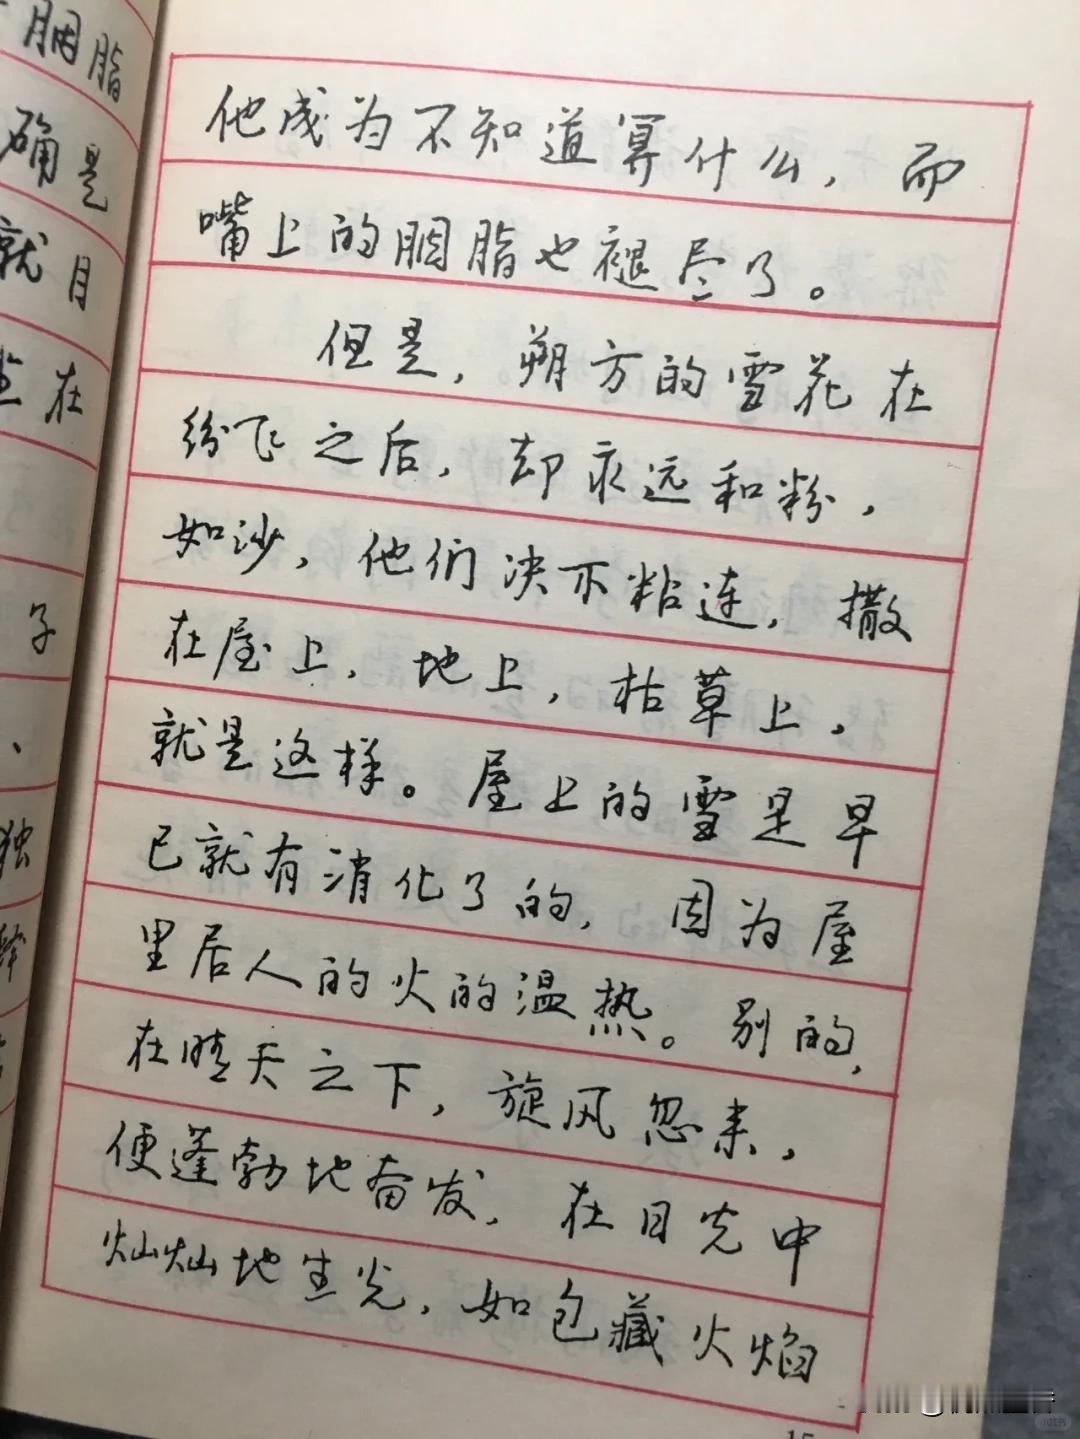 胭脂
确是
就目
在
子
、
独
他成为不知道算什么，而
嘴上的胭脂也褪尽了。
但是，朔方的雪花在
纷飞之后，却永远和粉，
如沙，他们决不粘连，撒
在屋上，地上，枯草上，
就是这样。屋上的雪是早
已就有消化了的，因为屋
里居人的火的温热。别的，
在晴天之下，旋风忽来，
便蓬勃地奋发，在日光中
灿灿地生光，如包藏火焰